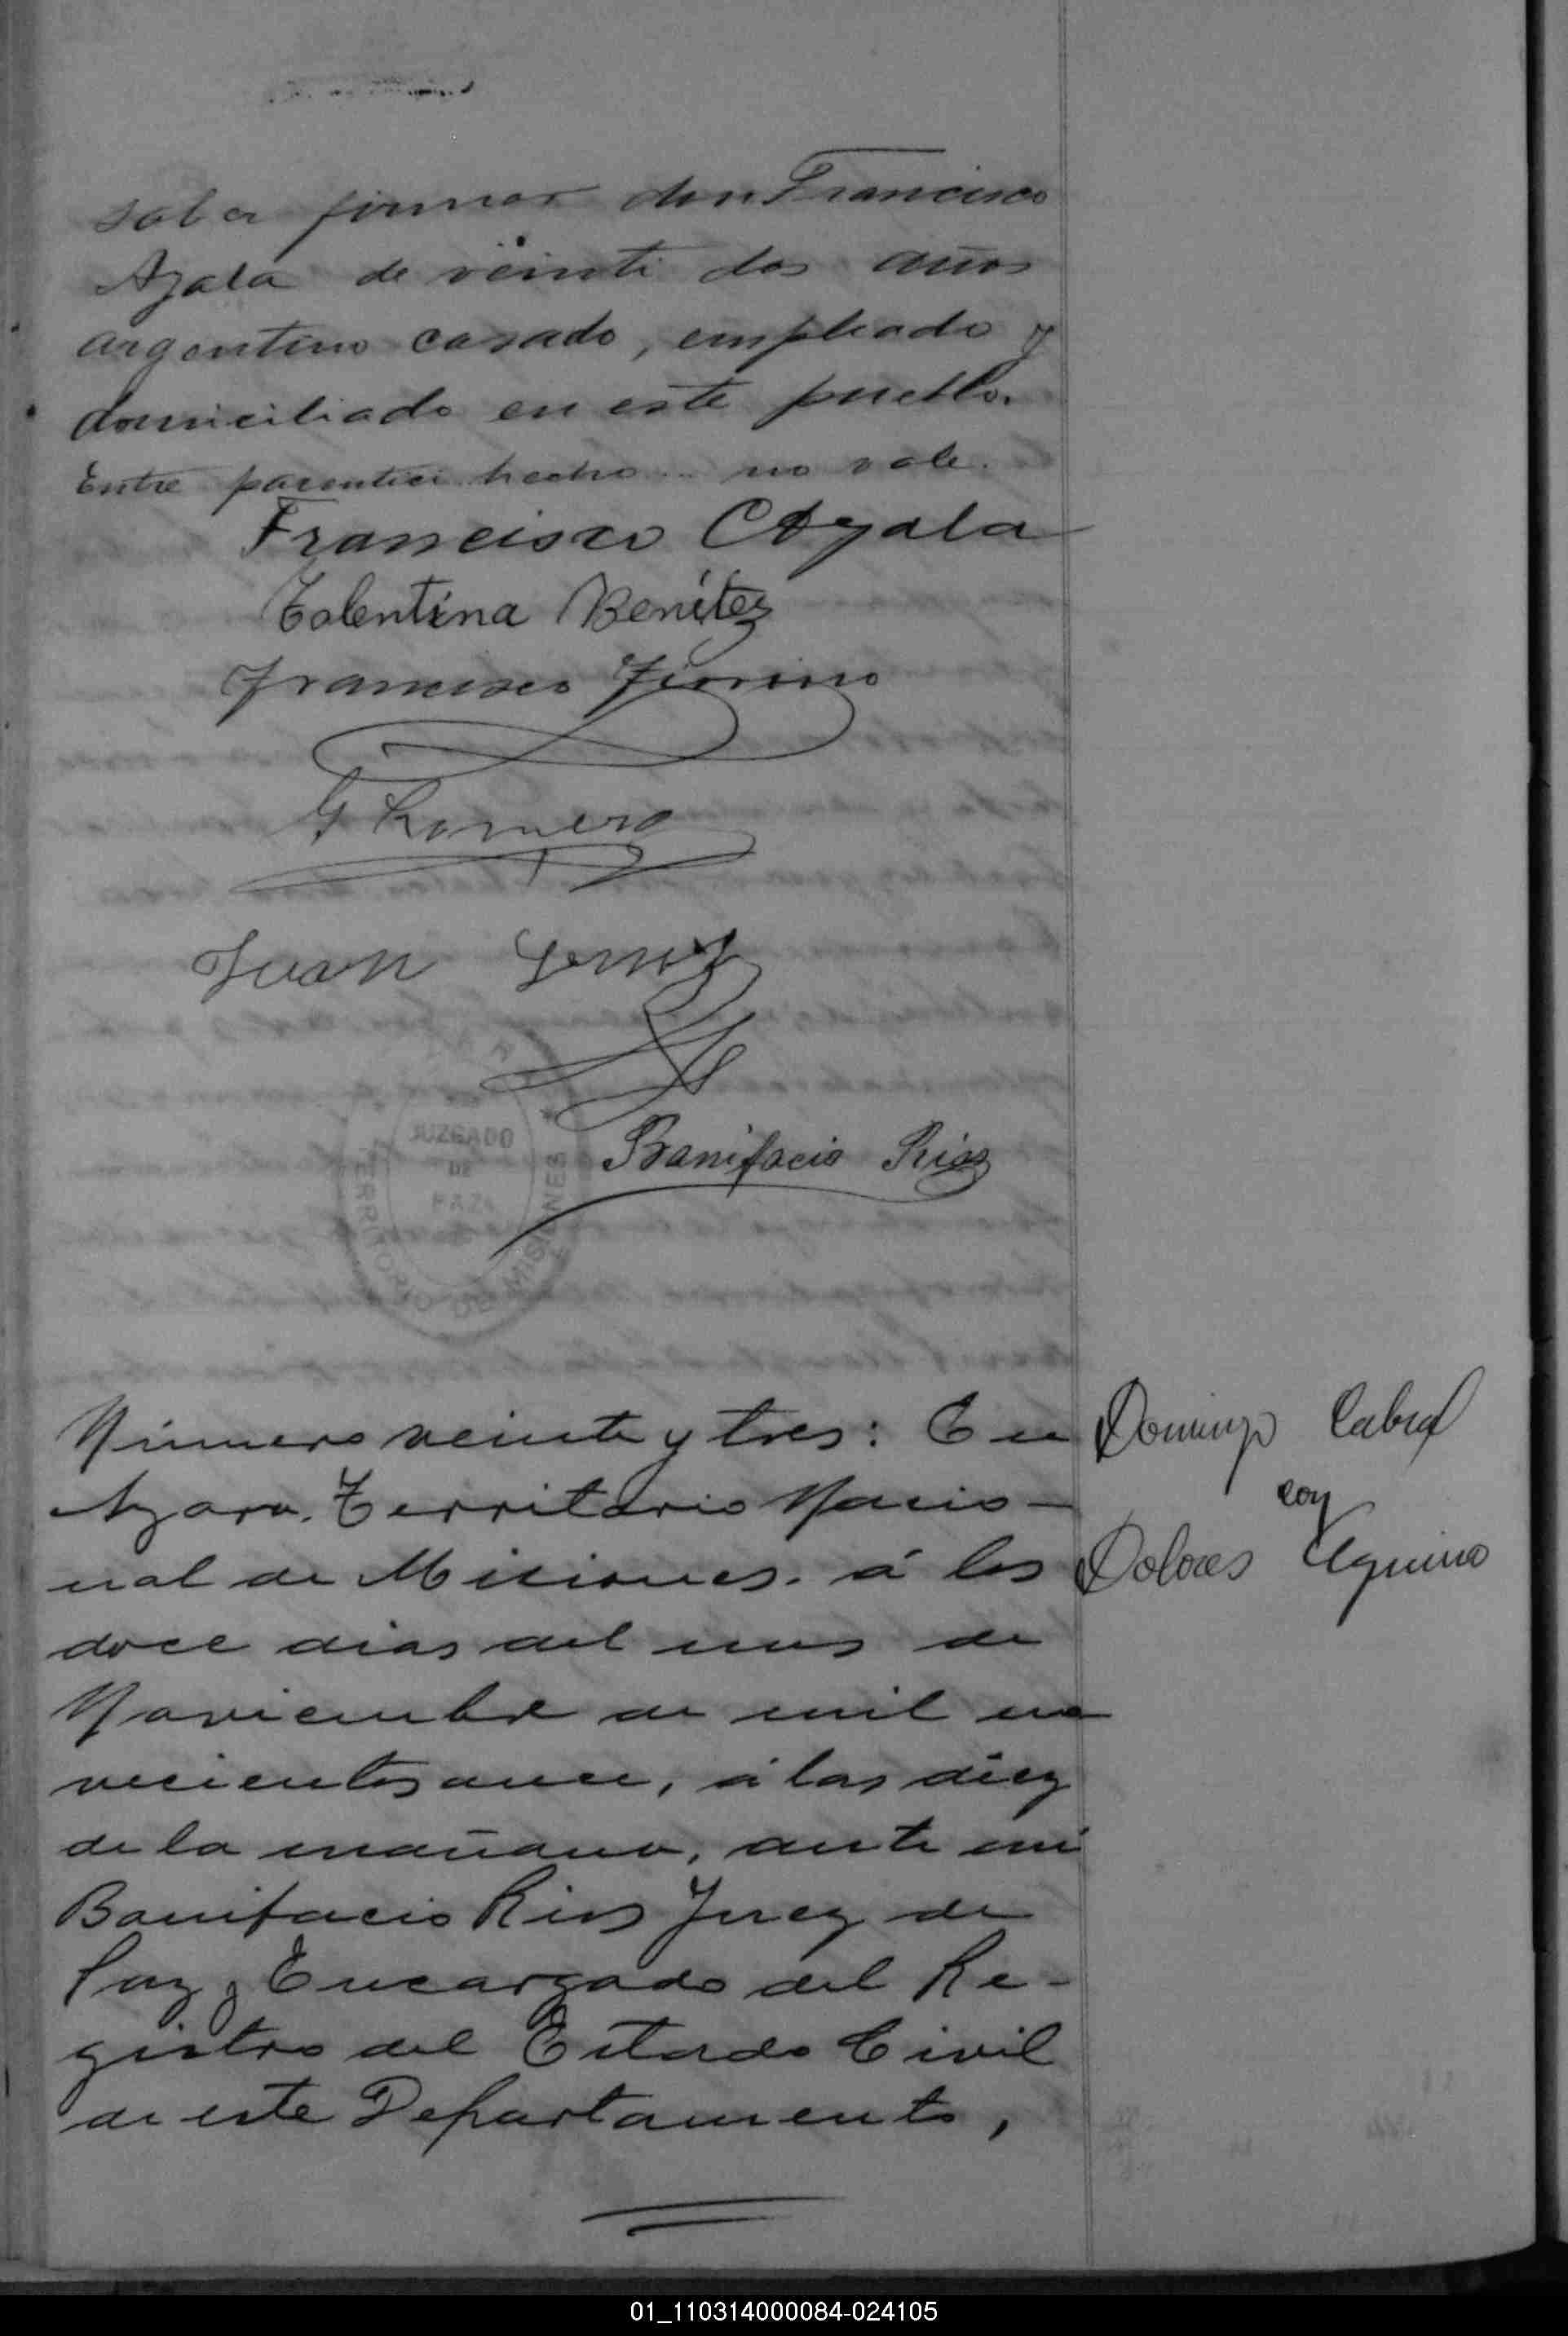 saber firmar don Francisco
Ayala de veinti dos años
argentino casado, empleado y
domiciliado en este pueblo.
Entre parentici hecho no vale.
Francisco Ayala
Tolentina Benítez
Francisco Fiorino
G Romero
Juan
JUZGADO
DE
PAZ
TERRITORIO DE MISIONES
Bonifacio Rios
Número veinte y tres: En
Azara, Territorio Nacio-
nal de Misiones. á los
doce dias del mes de
Noviembre de mil no
vecientos once, á las diez
de la mañana, ante mi
Bonifacio Rios Juez de
Paz y Encargado del Re-
gistro del Estado Civil
de este Departamento,
Domingo Cabral
con
Dolores Aquino
01_110314000084-024105